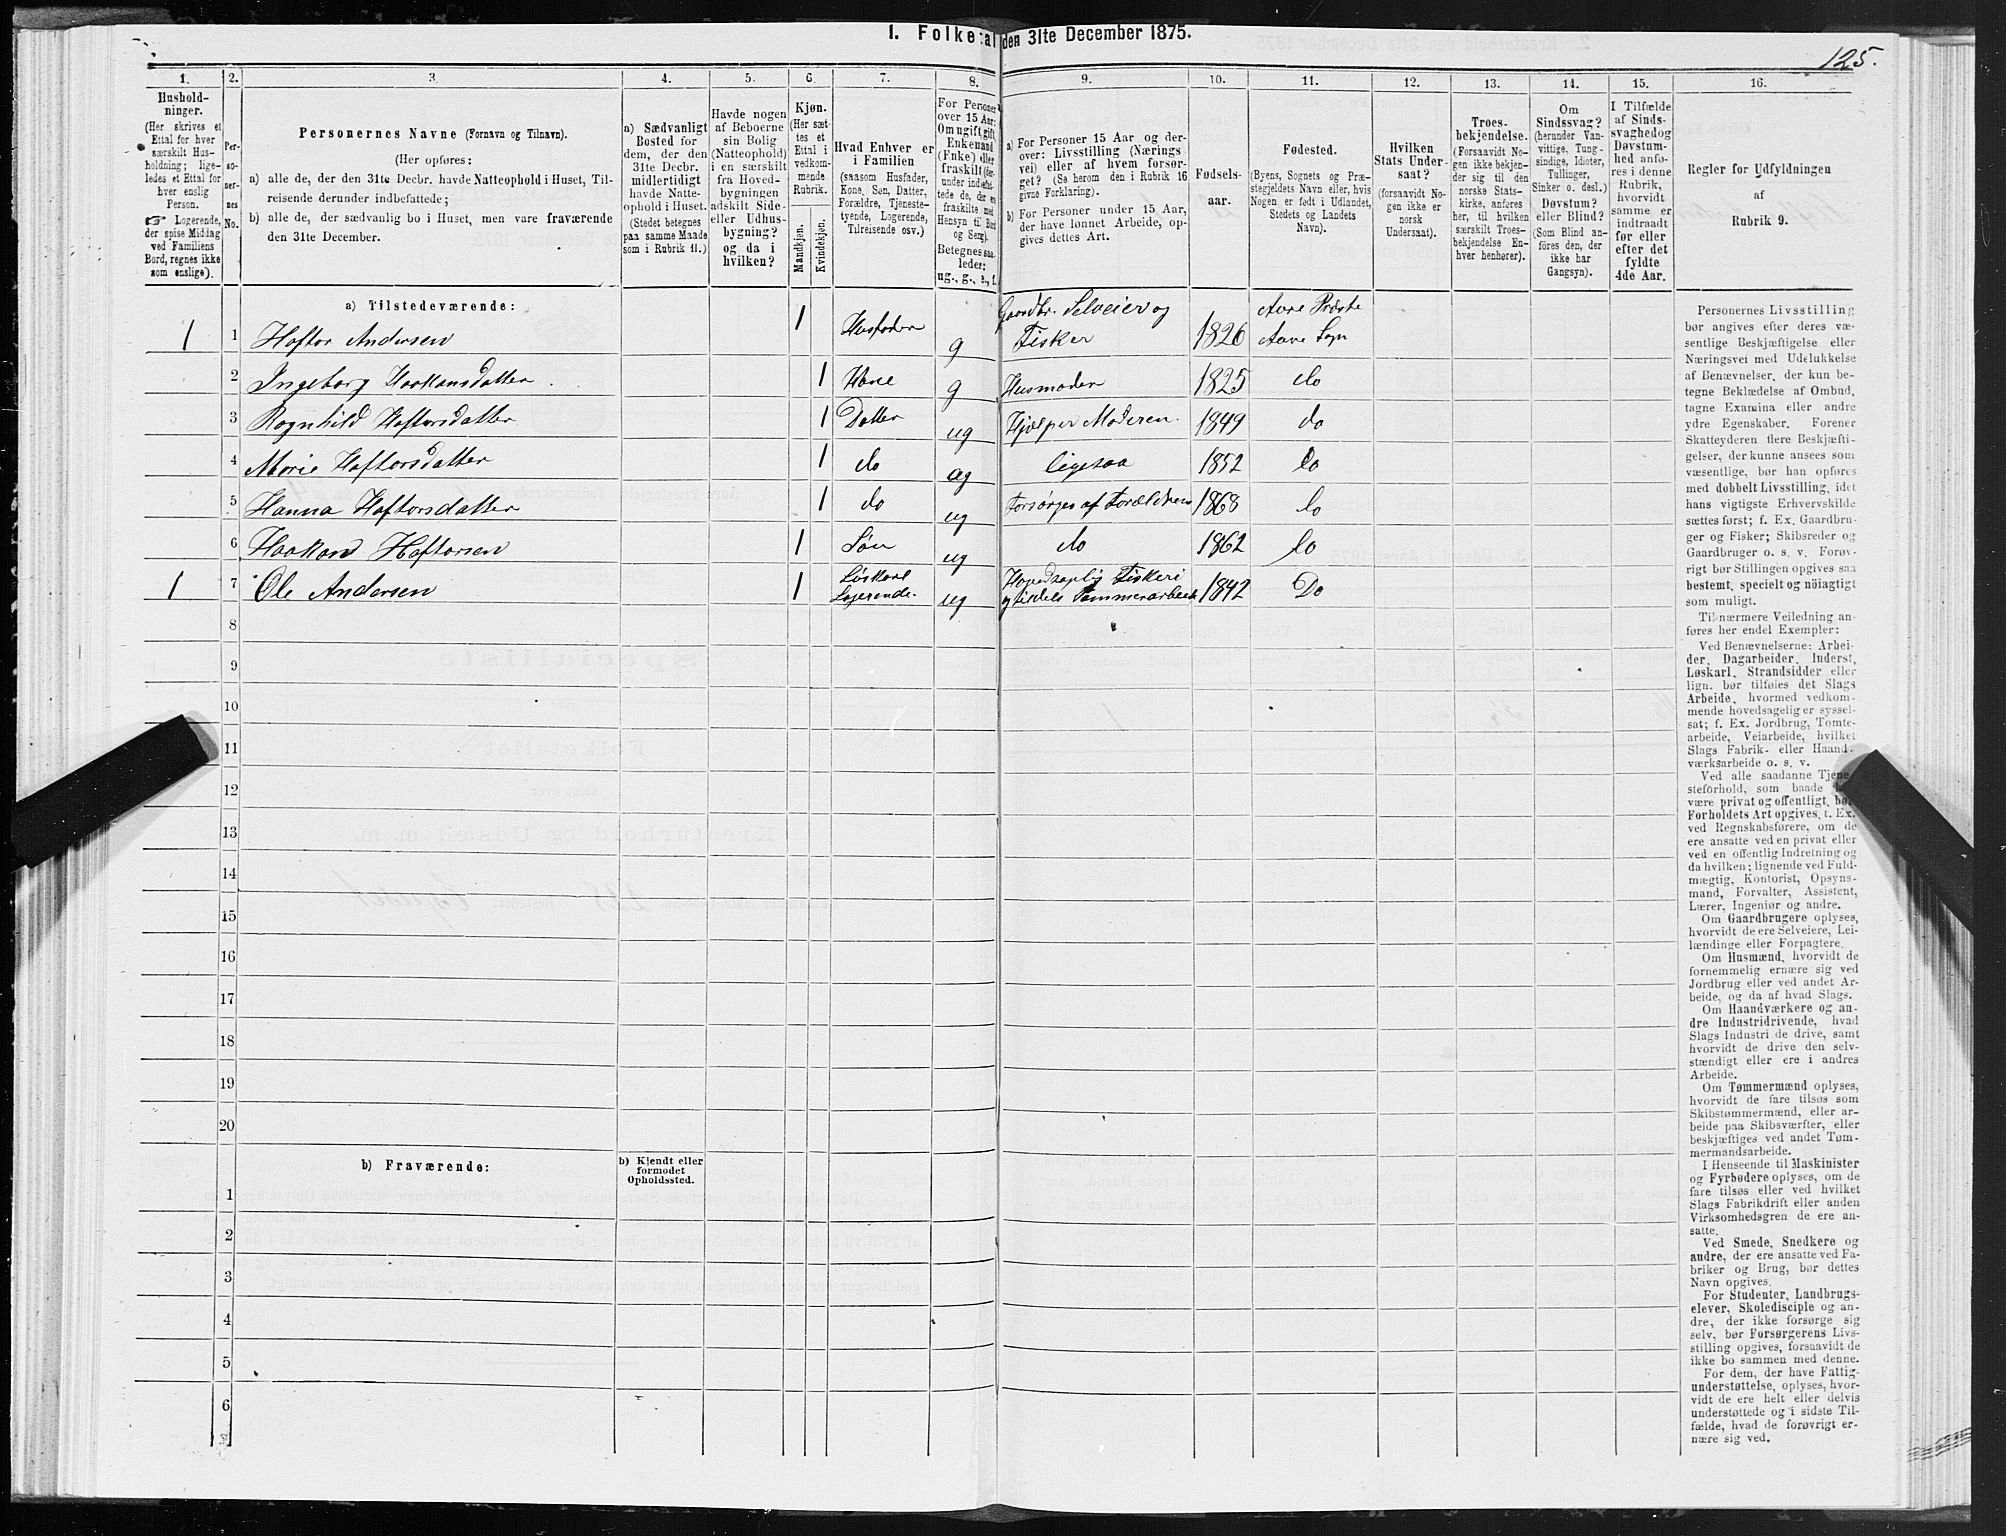 I. Folketal den 31te December 1875.
125.
1. 2. 3. 4. 5. 6. 7. 8. 9. 10. 11. 12. 13. 14. 15. 16.
Husholdninger.
(Her skrives et
Ettal for hver
særskilt Husholdning; ligeledes et Ettal for
hver enslig
Person.
☞ Logerende,
der spise Middag
ved Familiens
Bord, regnes ikke
som enslige).
Personernes No.
Personernes Navne (Fornavn og Tilnavn).
(Her opføres:
a) alle de, der den 31te Decbr. havde Natteophold i Huset, Tilreisende derunder indbefattede;
b) alle de, der sædvanlig bo i Huset, men vare fraværende
den 31te December.
a) Sædvanligt
Bosted for
dem, der den
31te Decbr.
midlertidigt
havde Natteophold i Huset.
(Stedet betegnes
paa samme Maade
som i Rubrik 11.)
Havde nogen
af Beboerne
sin Bolig
(Natteophold)
i en særskilt
fra Hovedbygningen
adskilt Side-
eller Udhusbygning?
og da i
hvilken?
Kjøn.
(Her sættes et
Ettal i
vedkommende
Rubrik.
Mandkjøn.
Kvindekjøn.
Hvad Enhver er
i Familien
(saasom Husfader,
Kone, Søn, Datter,
Forældre, Tjenestetyende, Logerende,
Tilreisende osv.)
For Personer
over 15 Aar:
Om ugift, gift,
Enkemand
(Enke) eller
fraskilt (herunder indbefattede de, der ere
fraskilte med
Hensyn til Bord
og Seng).
Betegnes saaledes:
ug., g., e., f.
a) For Personer 15 Aar og derover: Livsstilling (Næringsvei) eller af hvem forsørget? (Se herom den i Rubrik 16
givne Forklaring).
b) For Personer under 15 Aar,
der have lønnet Arbeide, opgives dettes Art.
Fødselsaar.
Fødested.
(Byens, Sognets og Præstegjeldets Navn eller, hvis
Nogen er født i Udlandet,
Stedets og Landets
Navn).
Hvilken
Stats Undersaat?
(forsaavidt Nogen ikke er
norsk
Undersaat).
Troesbekjendelse.
(Forsaavidt Nogen ikke bekjender sig til den
norske Statskirke, anføres
her, til hvilken
særskilt Troesbekjendelse Enhver henhører).
Om
Sindssvag?
(herunder Vanvittige, Tungsindige, Idioter,
Tullinger,
Sinker o. desl.)
Døvstum?
eller Blind?
(Som Blind anføres den, der
ikke har
Gangsyn).
I Tilfælde
af Sindssvaghed og
Døvstumhed anføres i denne
Rubrik,
hvorvidt
samme er
indtraadt
før eller
efter det
fyldte
4de Aar.
Regler for Udfyldningen
af
Rubrik 9.
a) Tilstedeværende:
1 1 Haftor Andersen 1 Husfader g Gaardbr. Selveier og Fisker 1826 Aure Præste Aure Sogn
2 Ingeborg Haakansdatter 1 Kone g Husmoder 1825 do
3 Ragnhild Haftorsdatter 1 Datter ug Hjelper Moderen 1849 do
4 Marie Haftorsdatter 1 do ug ligesaa 1852 do
5 Hanna Haftorsdatter 1 do ug Forsørges af Forældrene 1868 do
6 Haakon Haftorsen 1 Søn ug do 1862 do
1 7 Ole Andersen 1 Löskarl Logerende ug Hovedsaglig Fiskeri og tildels Tømmerarbeide 1842 Do
8
9
10
11
12
13
14
15
16
17
18
19
20
b) Fraværende:
b) Kjendt eller
formodet
Opholdssted.
1
2
3
4
5
6
Personernes Livsstilling
bør angives efter deres væsentlige Beskjæftigelse eller
Næringsvei med Udelukkelse
af Benævnelser, der kun betegne Beklædelse af Ombud,
tagne Examina eller andre
ydre Egenskaber. Forener
Skatteyderen flere Beskjæftigelser, der kunne ansees som
væsentlige, bør han opføres
med dobbelt Livsstilling, idet
hans vigtigste Erhvervskilde
sættes først; f. Ex. Gaardbruger og Fisker; Skibsreder og
Gaardbruger o. s. v. Forøvrigt bør Stillingen opgives saa
bestemt, specielt og nöiagtigt
som muligt.
Til nærmere Veiledning anføres her endel Exempler:
Ved Benævnelserne: Arbeider, Dagarbeider, Inderst,
Løskarl, Strandsidder eller
lign. bør tilføies det Slags
Arbeide, hvormed vedkommende hovedsagelig er sysselsat; f. Ex. Jordbrug, Tomtearbeide, Veiarbeide, hvilket
Slags Fabrik- eller Haandværksarbeide o. s. v.
Ved alle saadanne Tjenesteforhold, som baade
være privat og offentligt, bør
Forholdets Art opgives, t. Ex.
ved Regnskabsførere, om de
ere ansatte ved en privat eller
ved en offentlig Indretning og
da hvilken; lignende ved Fuldmægtig, Kontorist, Opsynsmand, Forvalter, Assistent,
Lærer, Ingeniør og andre.
Om Gaardbrugere oplyses,
hvorvidt de ere Selveiere, Leilændinge eller Forpagtere.
Om Husmænd, hvorvidt de
fornemmelig ernære sig ved
Jordbrug eller ved andet Arbeide, og da af hvad Slags.
Om Haandværkere og andre Industridrivende, hvad
Slags Industri de drive, samt
hvorvidt de drive den selvstændigt eller ere i andres
Arbeide.
Om Tømmermænd oplyses,
hvorvidt de fare tilsøs som
Skibstømmermænd, eller arbeide paa Skibsværfter, eller
beskjæftiges ved andet Tømmermandsarbeide.
I Henseende til Maskinister
og Fyrbødere oplyses, om de
fare tilsøs eller ved hvilket
Slags Fabrikdrift eller anden
Virksomhedsgren de ere ansatte.
Ved Smede, Snedkere og
andre, der ere ansatte ved Fabriker og Brug, bør dettes
Navn opgives.
For Studenter, Landbrugselever, Skoledisciple og andre, der ikke forsørge sig
selv, bør Forsørgerens Livsstilling opgives, forsaavidt de
ikke bo sammen med denne.
For dem, der have Fattigunderstøttelse, oplyses, hvorvidt de ere helt eller delvis
understøttede og i sidste Tilfælde, hvad de forøvrigt ernære sig ved.